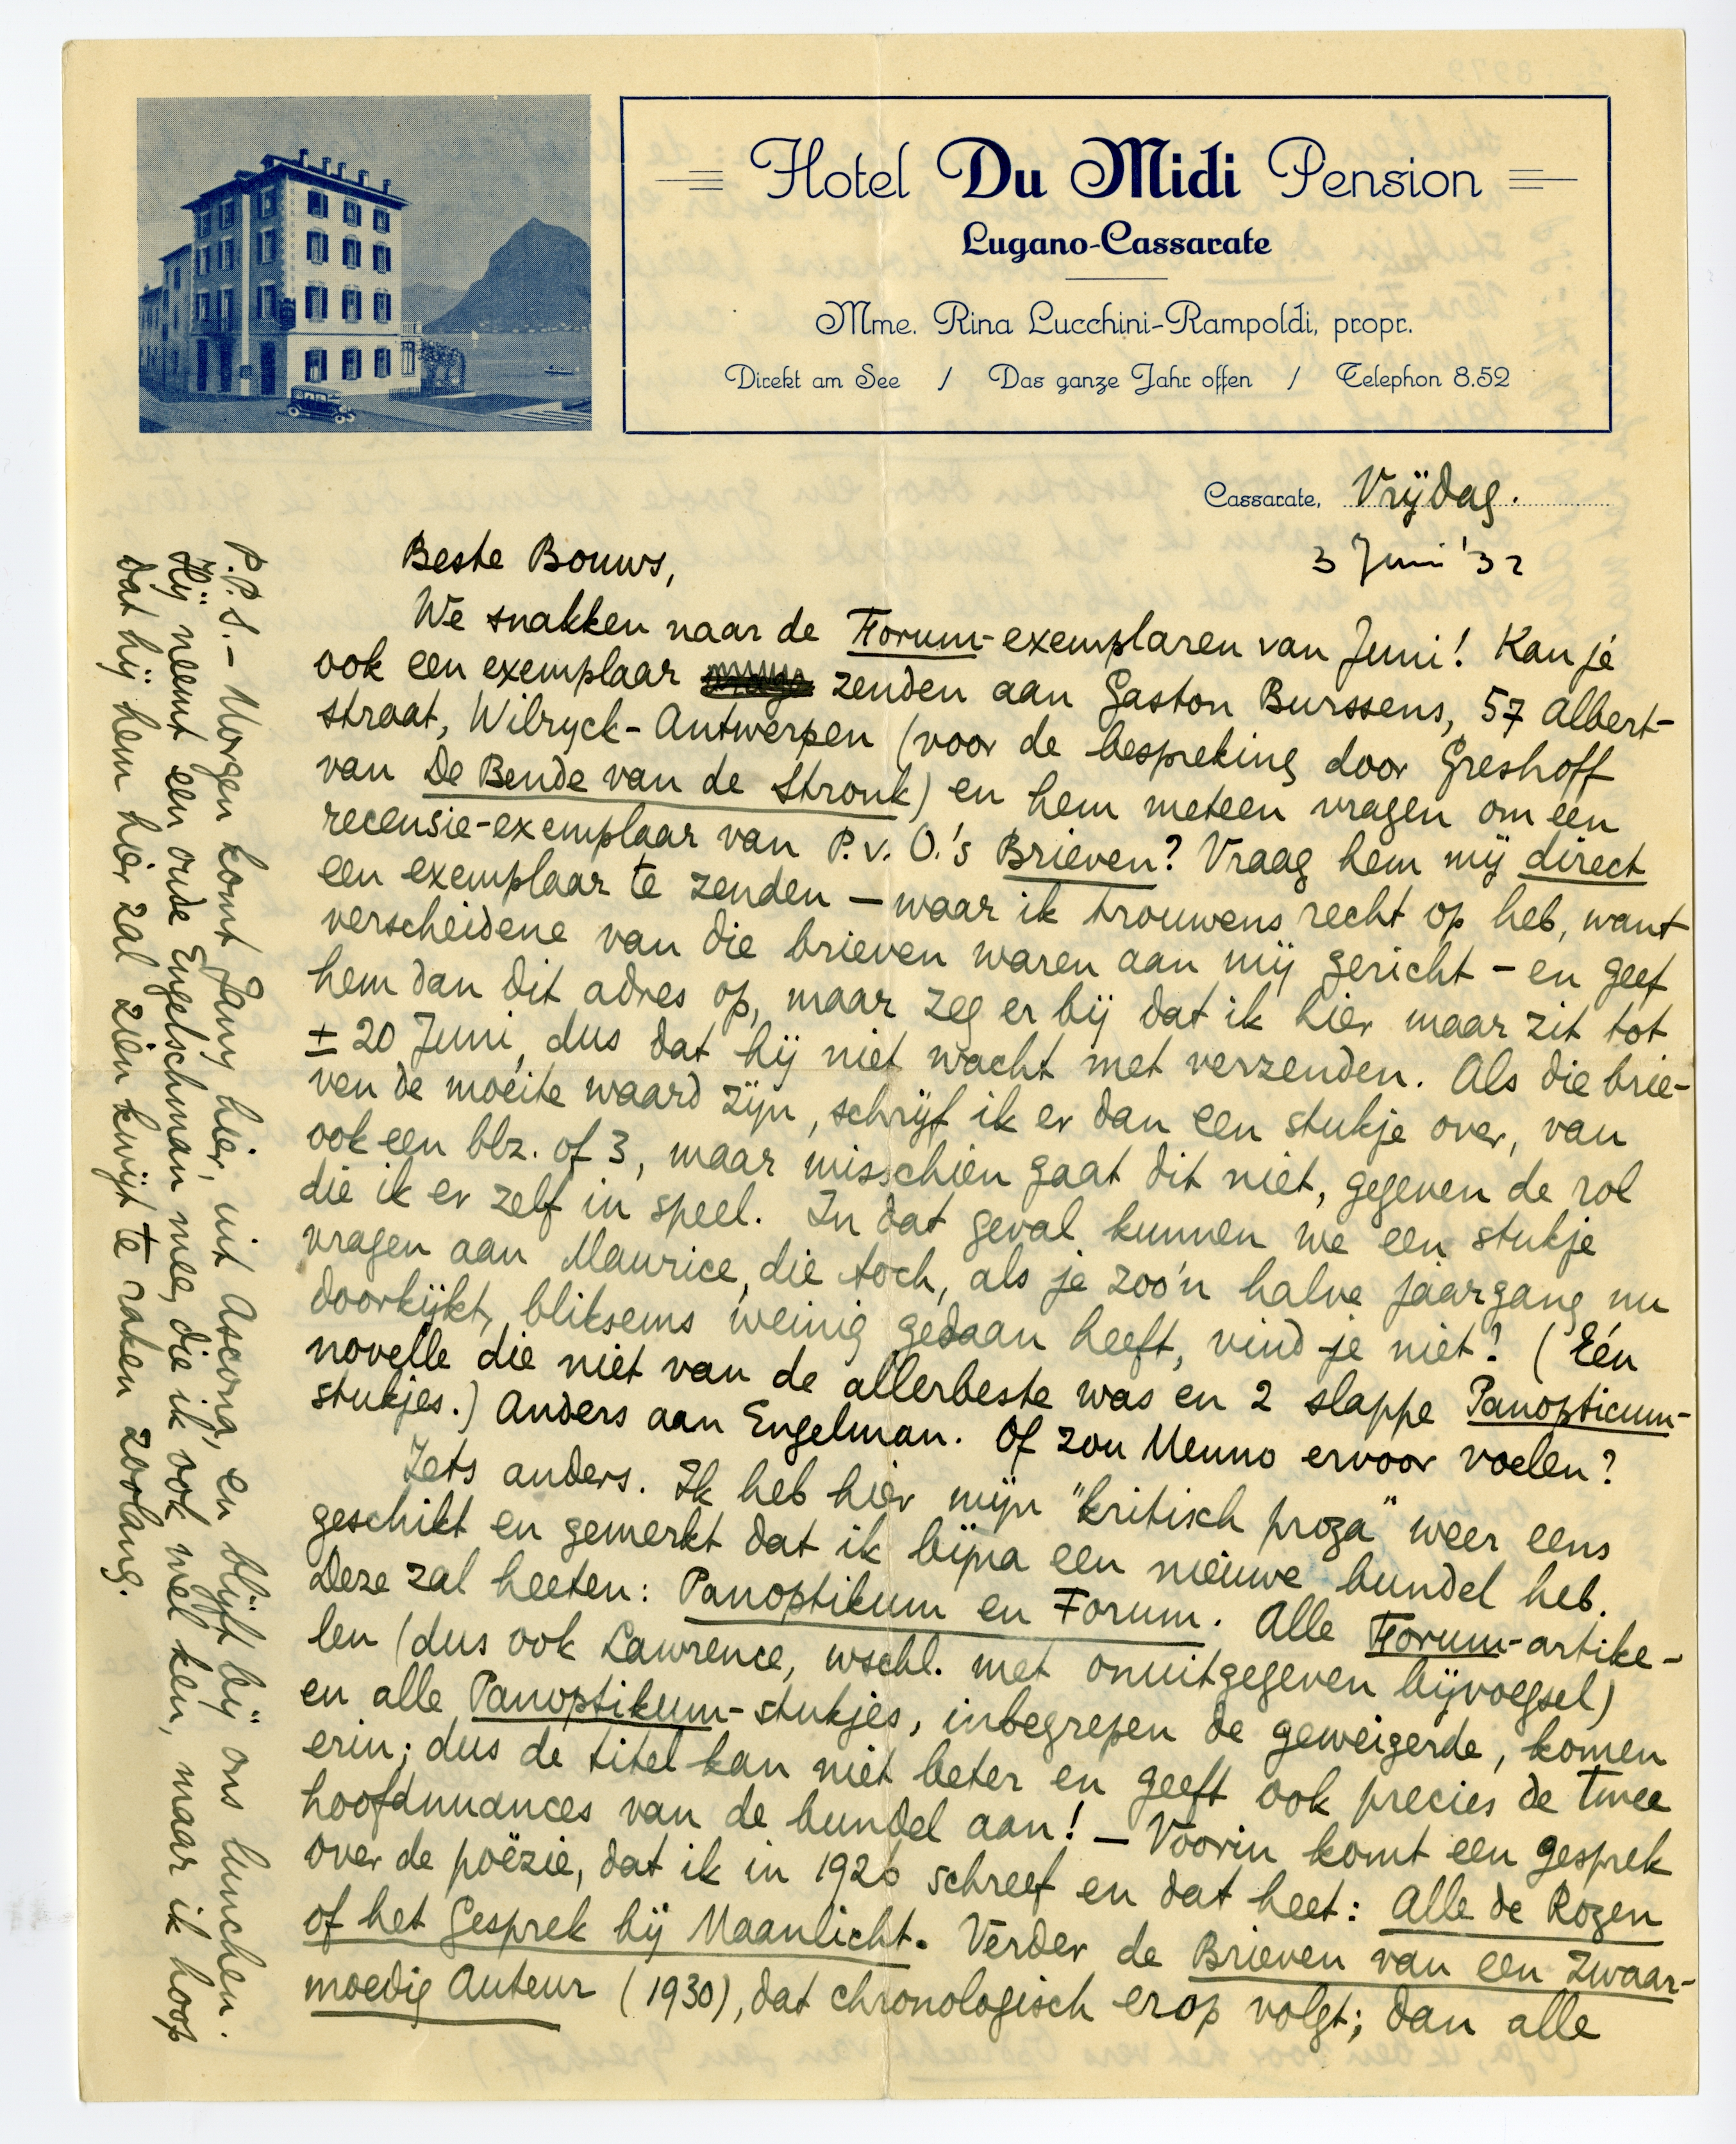 Hotel Du Midi Pension
Lugano-Cassarate
Mme. Rina Lucchini-Rampoldi, propr.
Direkt am See / Das ganze Jahr offen / Telephon 8.52
Cassarate, Vrijdag.
3 Juni '32
Beste Bouws,
We snakken naar de Forum-exemplaren van Juni! Kan je
ook een exemplaar zenden aan Gaston Burssens, 57 Albert-
straat, Wilryck-Antwerpen (voor de bespreking door Greshoff
van De Bende van de Stronk) en hem meteen vragen om een
recensie-exemplaar van P.v.O.'s Brieven? Vraag hem mij direct
een exemplaar te zenden — waar ik trouwens recht op heb, want
verscheidene van die brieven waren aan mij gericht — en geef
hem dan dit adres op, maar zeg er bij dat ik hier maar zit tot
± 20 Juni, dus dat hij niet wacht met verzenden. Als die brie-
ven de moeite waard zijn, schrijf ik er dan een stukje over, van
ook een blz. of 3, maar misschien gaat dit niet, gegeven de rol
die ik er zelf in speel. In dat geval kunnen we een stukje
vragen aan Maurice, die toch, als je zoo'n halve jaargang nu
doorkijkt, bliksems weinig gedaan heeft, vind-je niet? (Eén
novelle die niet van de allerbeste was en 2 slappe Panopticum-
stukjes.) Anders aan Engelman. Of zou Menno ervoor voelen?
Iets anders. Ik heb hier mijn "kritisch proza" weer eens
geschikt en gemerkt dat ik bijna een nieuwe bundel heb.
Deze zal heeten: Panoptikum en Forum. Alle Forum-artike-
len (dus ook Lawrence, wschl. met onuitgegeven bijvoegsel)
en alle Panoptikum-stukjes, inbegrepen de geweigerde, komen
erin; dus de titel kan niet beter en geeft ook precies de twee
hoofdnuances van de bundel aan! — Voorin komt een gesprek
over de poëzie, dat ik in 1926 schreef en dat heet: Alle de Rozen
of het Gesprek bij Maanlicht. Verder de Brieven van een Zwaar-
moedig Auteur (1930), dat chronologisch erop volgt; dan alle
P.P.S. — Morgen komt Jany hier, uit Ascona, en blijft bij ons lunchen.
Hij neemt een oude Engelschman mee, die ik ook wel ken, maar ik hoop
dat hij hem hier zal zien kwijt te raken zoolang.